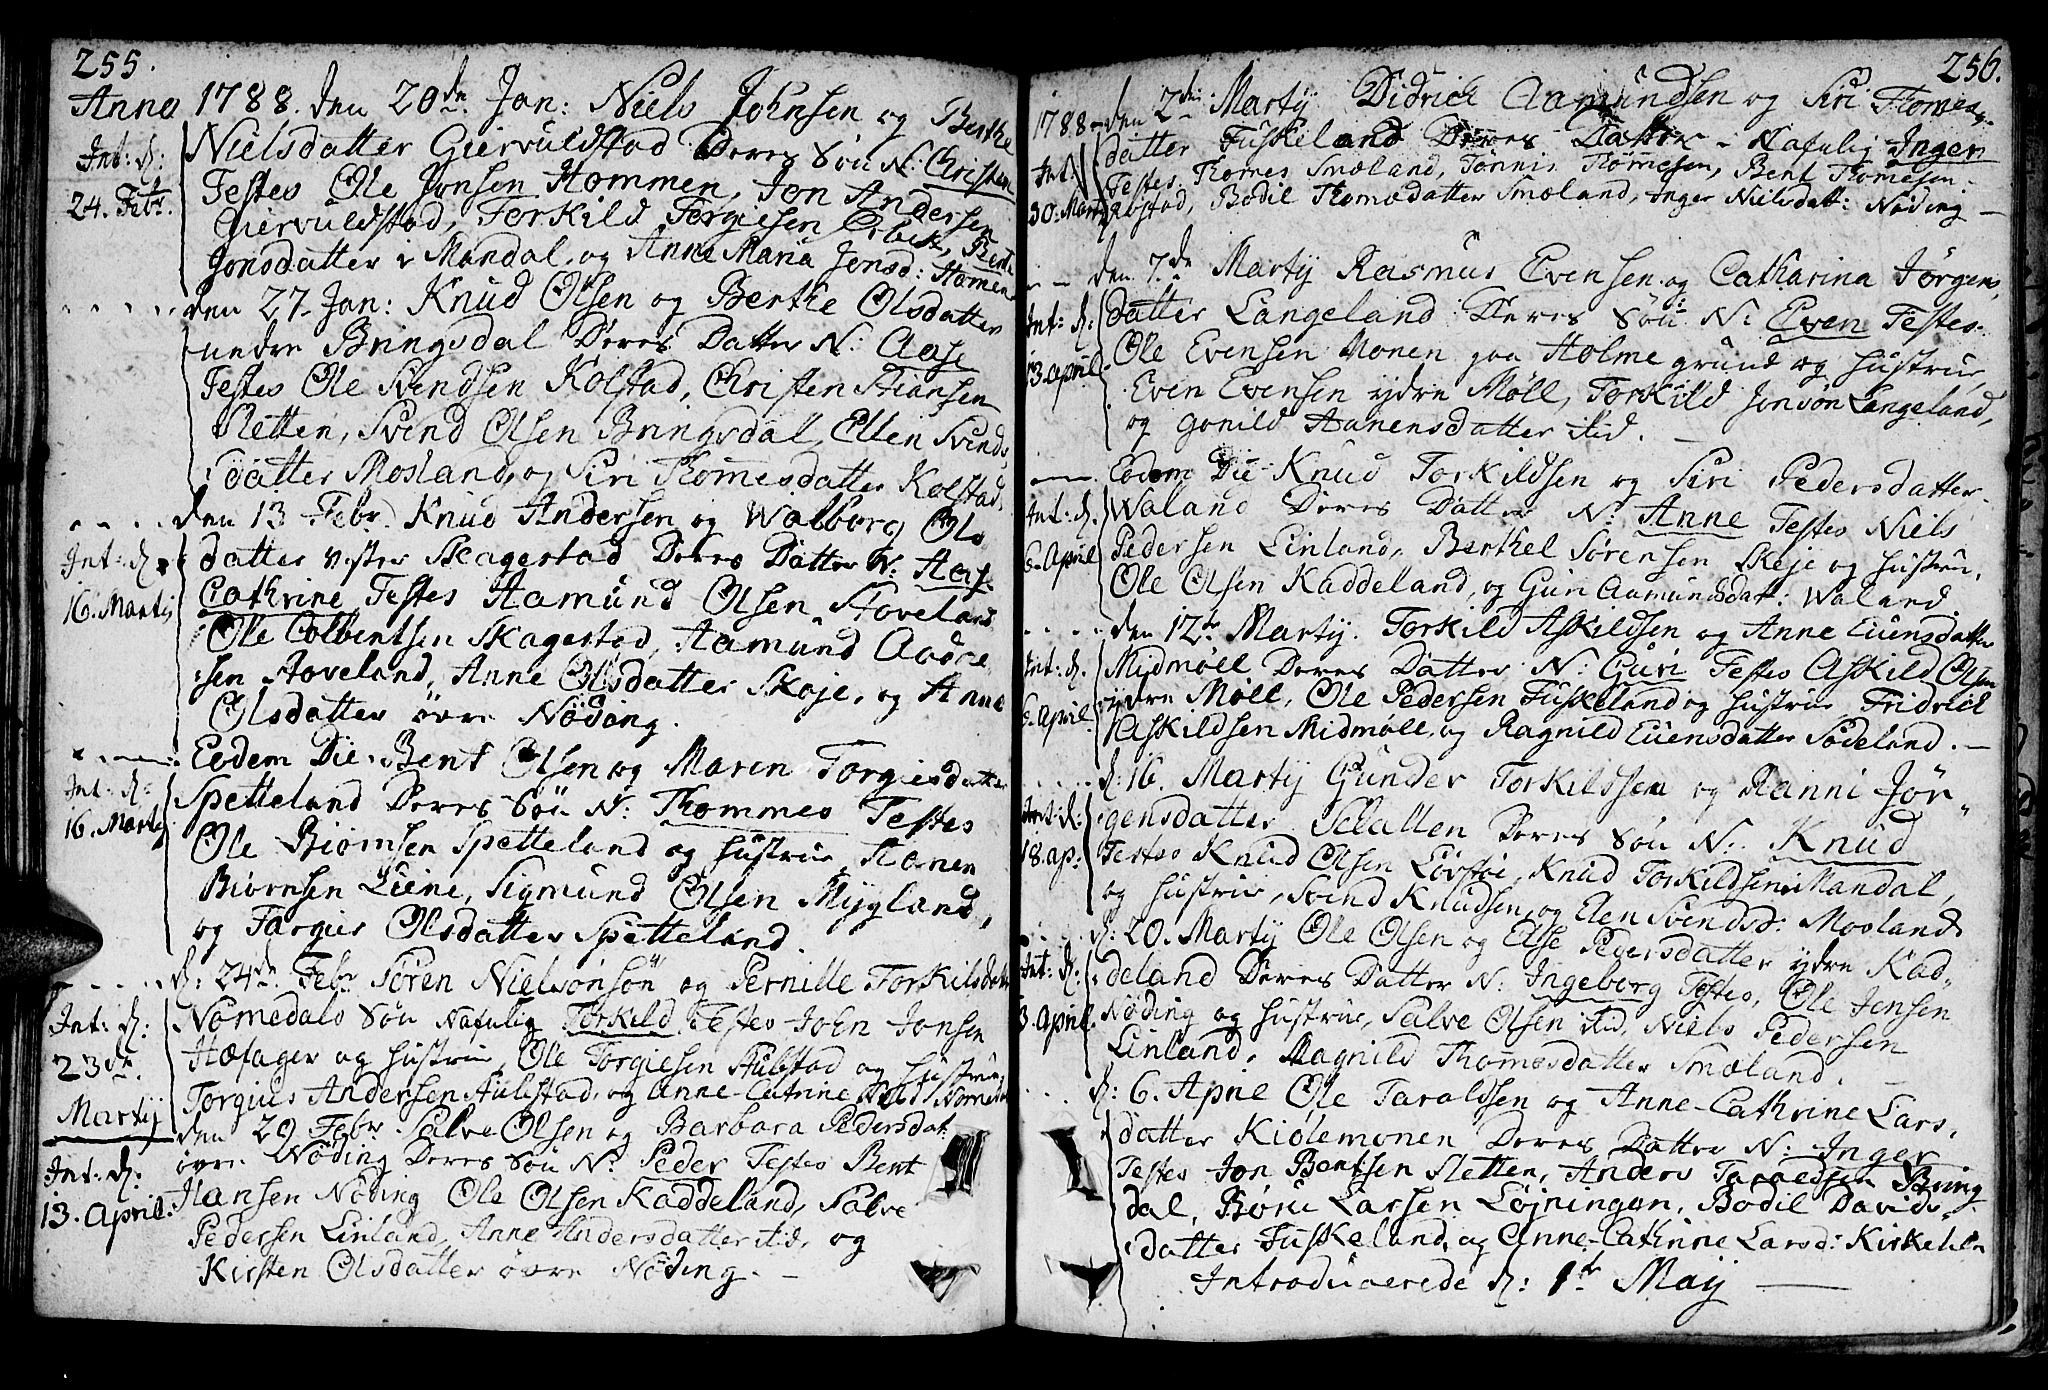 255.
Anno 1788. den 20de Jan: Niels Johnsen og Berthe
Nielsdatter Giervuldstad Deres Søn N: Christen
Int: d:
24. Febr.
Testes Ole Jonsen Hommen, Jon Andersen
Giervuldstad, Torkild Torgiesen Øibek, Berte
Jonsdatter i Mandal, og Anne Maria Jonsd: Homen
den 27 Jan: Knud Olsen og Berthe Olsdatter
nedre Bringsdal Deres Datter N: Aase
Testes Ole Svendsen Kolstad, Christen Stiansen
Sletten, Svend Olsen Bringsdal, Ellen Svends
datter Mosland, og Siri Thomesdatter Kolstad,
den 13 Febr. Knud Andersen og Walborg Ols
Int: d:
16. Martij
datter vester Skagestad Deres Datter N: Aase
Cathrine Testes Aamund Olsen Stoveland
Ole Colbentsen Skagestad, Aamund Andre
sen Stoveland, Anne Olsdatter Skeje, og Anne
Olsdatter öвre Nöding.
Eodem Die Bent Olsen og Maren Torgiesdatter
Int: d:
16. Martij
Spetteland Deres Søn N: Thommes Testes
Ole Biørnsen Spetteland og hustrue, Aanen
Biørnsen Liene, Sigmund Olsen Mygland,
og Targier Olsdatter Spetteland.
d: 24de Febr Sören Nielsönsön og Pernille Torkilsdatter
Int: d:
23de
Martij
Nomedals Søn Nafnlig Torkild Testes John Jonsen
Hæfager og hustrue, Ole Torgiesen Stubstad og hustrue,
Torgius Andersen Stubstad, og Anne Catrine Nomedal
den 29 Febr Salve Olsen og Barbara Pedersdat
Int: d:
13. April.
öвre Nöding Deres Søn N: Peder Testes Bent
Hansen Nöding Ole Olsen Kaddeland, Salve
Pedersen Linland, Anne Andersdatter itid, og
Kirsten Olsdatter öвre Nöding.
256.
1788 den 2de Martij Didrich Aamundsen og Siri Thomes
Int: d:
30. Martij
datter Fuskeland Deres Datter Nafnlig Inger
Testes Thomes Smæland, Tönnis Thomesen, Bent Thomesen
Røstad, Bodil Thomsdatter Smæland, Inger Nielsdatt: Nöding
den 7de Martij Rasmus Evensen og Catharina Jörgens
Int: d:
13 April
datter Langeland Deres Søn N: Even Testes
Ole Evensen Monen paa Holme grund og hustrue,
Even Evensen ydre Møll, Torkild Jonsön Langeland,
og Gonild Aanensdatter itid.
Eodem Die Knud Torkildsen og Siri Pedersdatter
Int: d.
6. April
Waland Deres Datter N: Anne Testes Niels
Pedersen Linland, Berthel Sörensen Skeje og hustru,
Ole Olsen Kaddeland, og Guri Aamundsdatt: Waland.
den 12te Martij. Torkild Askildsen og Anne Evensdatter
Int: d.
6. April
Midmøll Deres Datter N: Guri Testes Askild Olsen
ydre Møll, Ole Pedersen Fuskeland og hustrue Fridrich
Askildsen Midmöll, og Ragnild Evensdatter Sødeland.
d: 16. Martij Gunder Torkildsen og Ranni Jör
Int: d:
18. ap:
gensdatter Selatten Deres Søn N. Knud
Testes Knud Olsen Lövstöi, Knud Torkildsen i Mandal,
og hustrue, Svend Knudsen, og Elen Svendsd: Mosland
d: 20. Martij Ole Olsen og Else Pedersdatter ydre Kad
Int: d:
3. April.
deland Deres Datter N: Ingeborg Testes, Ole Jensen
Nöding og hustrue, Salve Olsen itid, Niels Pedersen
Linland, Magnild Thomesdatter Smæland.
d: 6. April Ole Taraldsen og Anne Cathrine Lars
datter Kiølemonen Deres Datter N: Inger
Testes Jon Bentsen Sletten, Anders Taraldsen Bring
dal, Börie Larsen Löjningen, Bodil Davids
datter Fuskeland, og Anne Cathrine Larsd: Kirkehln
Introducerede d: 1te Maij